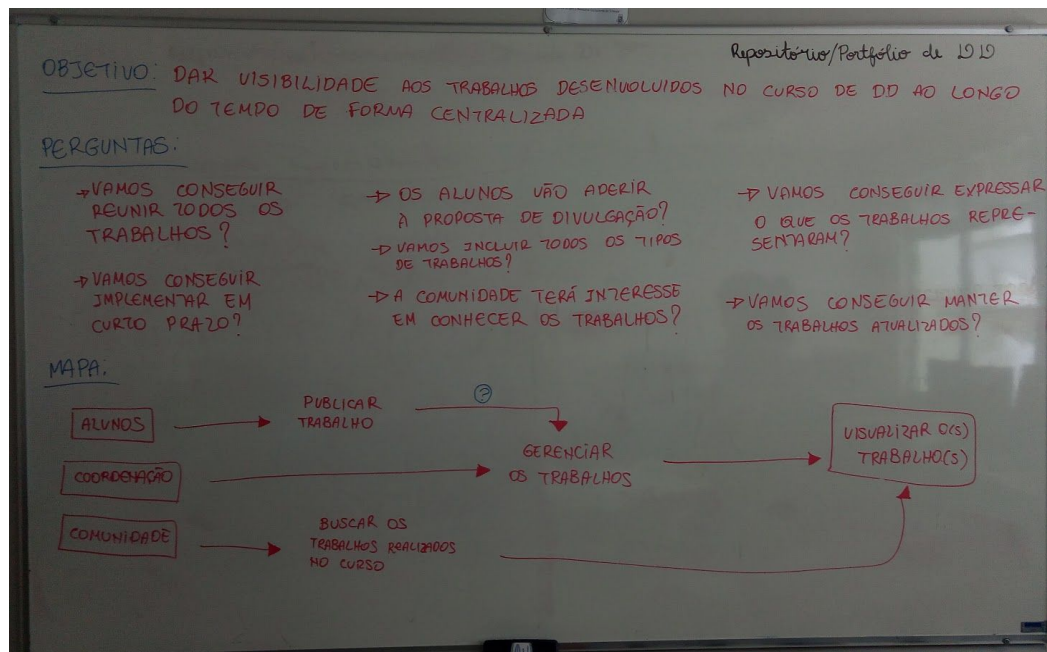 Repositório/Portfólio de DD
OBJETIVO: DAR VISIBILIDADE AOS TRABALHOS DESENVOLVIDOS NO CURSO DE DD AO LONGO
DO TEMPO DE FORMA CENTRALIZADA
PERGUNTAS:
→ VAMOS CONSEGUIR
REUNIR TODOS OS
TRABALHOS?
→ VAMOS CONSEGUIR
IMPLEMENTAR EM
CURTO PRAZO?
→ OS ALUNOS VÃO ADERIR
À PROPOSTA DE DIVULGAÇÃO?
→ VAMOS INCLUIR TODOS OS TIPOS
DE TRABALHOS?
→ A COMUNIDADE TERÁ INTERESSE
EM CONHECER OS TRABALHOS?
→ VAMOS CONSEGUIR EXPRESSAR
O QUE OS TRABALHOS REPRE-
SENTARAM?
→ VAMOS CONSEGUIR MANTER
OS TRABALHOS ATUALIZADOS?
MAPA:
ALUNOS
PUBLICAR
TRABALHO
?
COORDENAÇÃO
GERENCIAR
OS TRABALHOS
VISUALIZAR O(S)
TRABALHO(S)
COMUNIDADE
BUSCAR OS
TRABALHOS REALIZADOS
NO CURSO